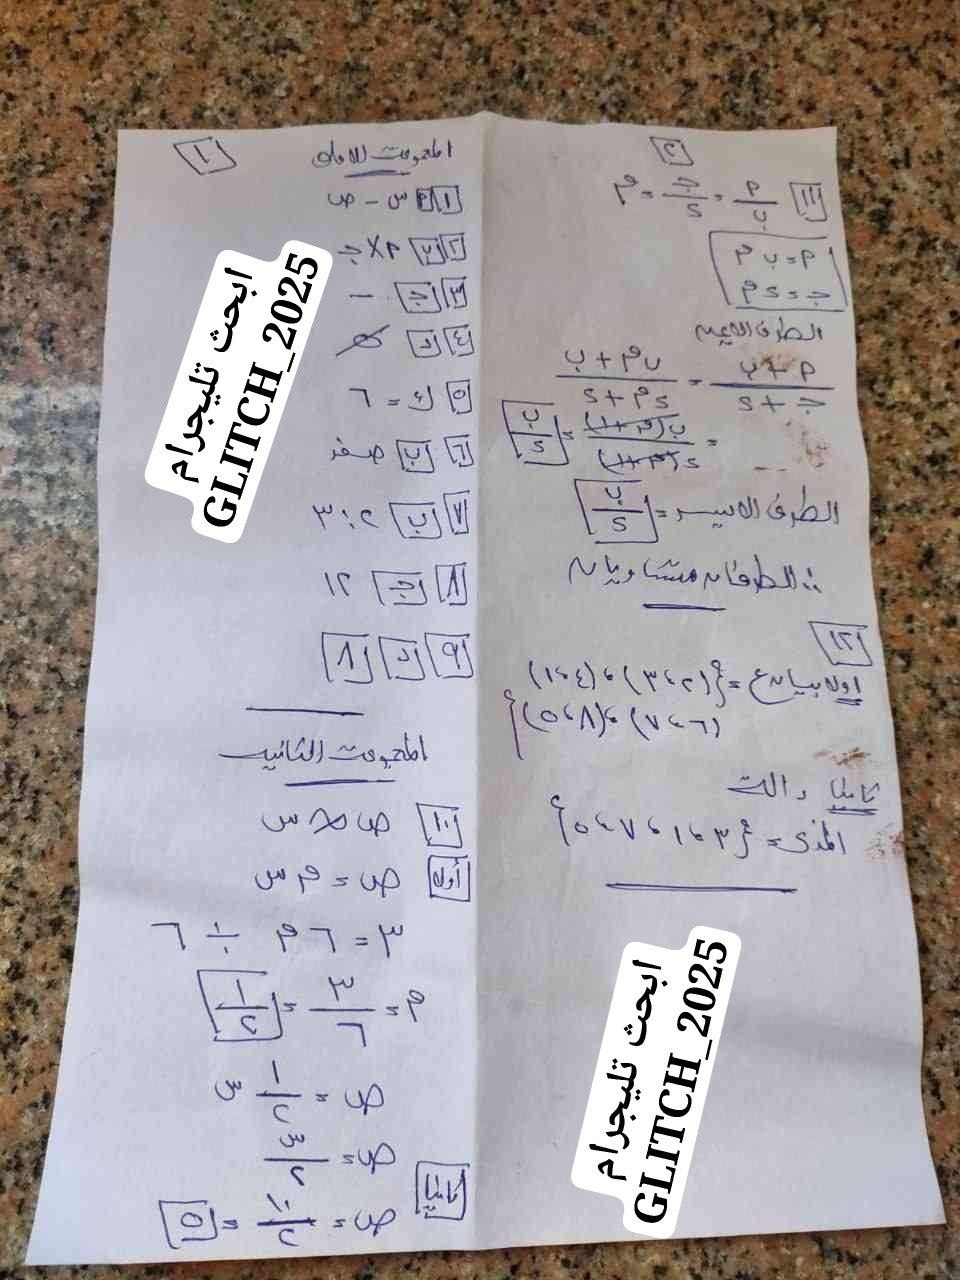 المجموعة الأولى ١
١ أ س - ص
٢ ب م × ج
٣ ج -
٤ د
٥ ك = ٦
٦ ب صفر
٧ ب ٢ : ٣
٨ ج ٢١
٩ د ٨
المجموعة الثانية
١٠ ص ∝ س
أولا ص = م س
٣ = ٦ م ÷ ٦
م = ٣/٦ = ١/٢
ص = ١/٢ س
ص = س/٢
ثانيا ص = ١٠/٢ = ٥
٢
١١ م/ب = ج/د = م
م = ب م
ج = د م
الطرف الايمن
م + ب / ج + د = ب م + ب / د م + د
= ب(م+١) / د(م+١) = ب/د
الطرف الايسر = ب/د
∴ الطرفان متساويان
١٢
اولا بيان ع = {(٢،٣)،(٤،١)
(٦،٨)،(٨،٥)}
ثانيا دالة
المدى = {٣،١،٨،٥}
ابحث تليجرام
GLITCH_2025
ابحث تليجرام
GLITCH_2025